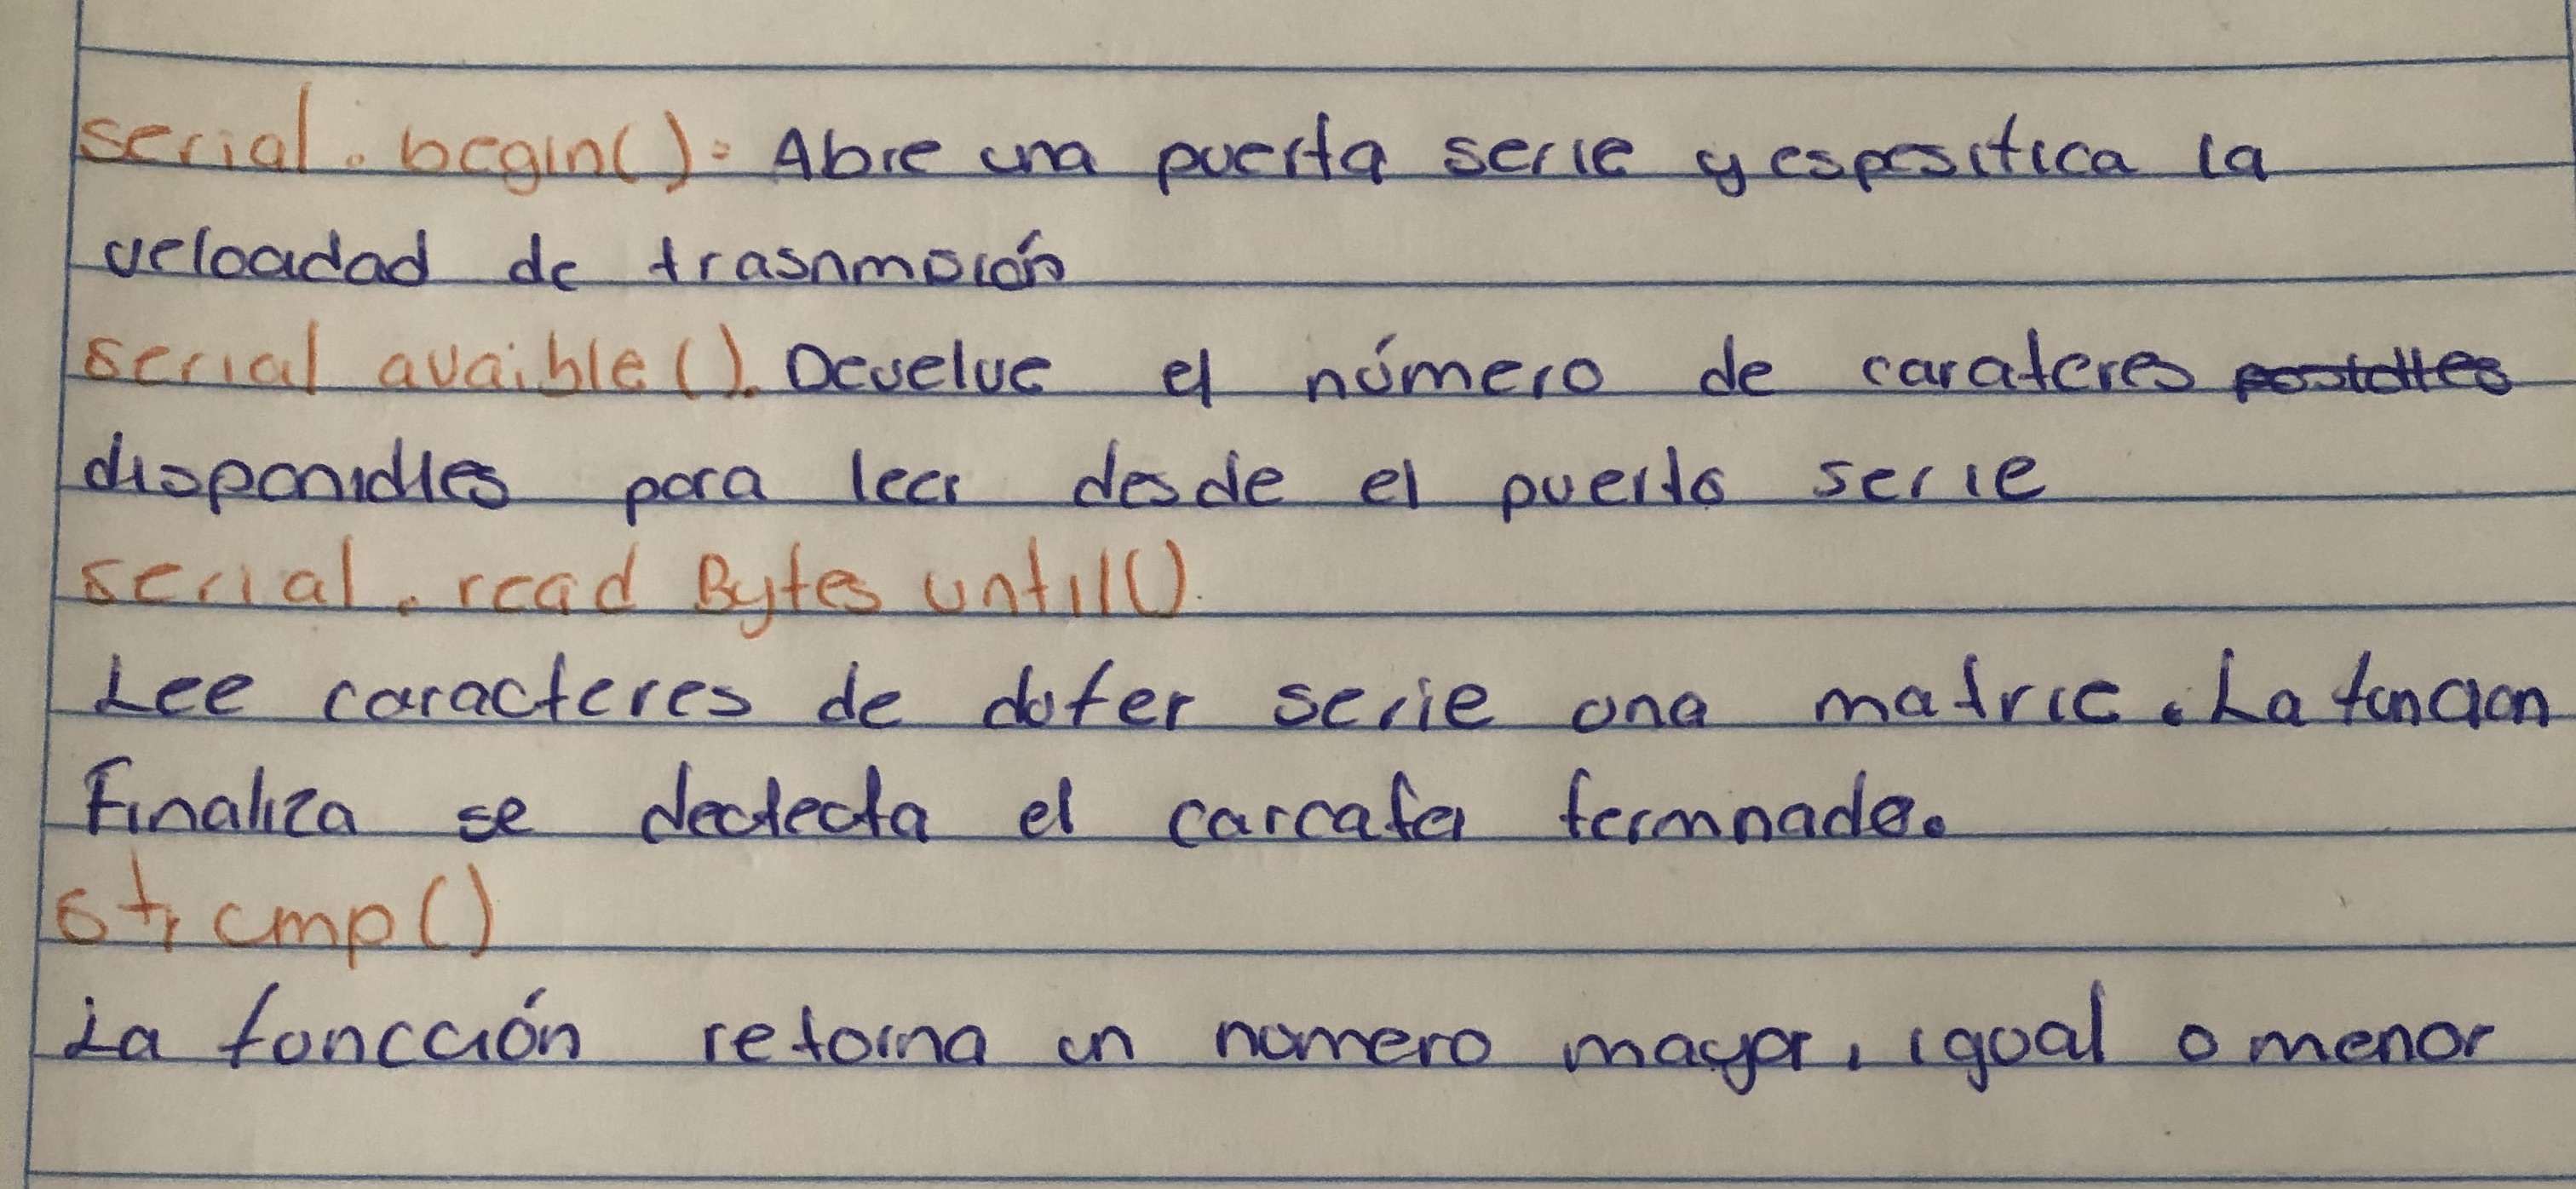 serial.begin(): Abre una puerta serie y espesitica la
velocidad de trasnmoción
serial avaible(). Devuelve el número de carateres
disponidles para leer desde el puerto serie
serial.read Bytes until().
Lee caracteres de dofer serie una matric. La función
Finaliza se dectecta el carcater termnado.
strcmp()
La foncción retorna un nomero mayor, igual o menor